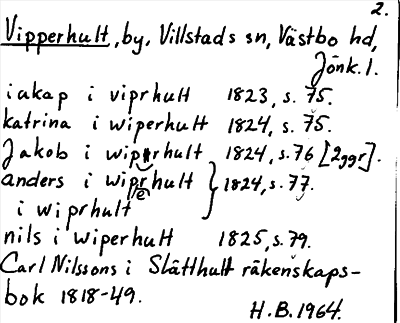 2.
Vipperhult, by, Villstads sn, Västbo hd,
Jönk. l.
iakap i viprhult 1823, s. 75.
katrina i wiperhult 1824, s. 75.
Jakob i wiprhult 1824, s. 76 [2ggr].
anders i wiprhult } 1824, s. 77.
i wiprhult
nils i wiperhult 1825, s. 79.
Carl Nilssons i Slätthult räkenskaps-
bok 1818-49.
H.B. 1964.